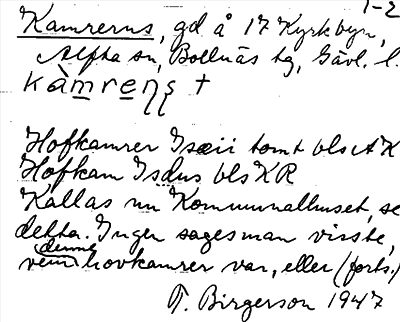 1-2
Kamrerns, gd å 17 Kyrkbyn,
Alfta sn, Bollnäs tg, Gävl. l.
kàmrens †
Hofkamrer Isæii tomt bls AK
Hofkam Isdus bls KR
Kallas nu Kommunalhuset, se
detta. Ingen sagesman visste,
vem denne hovkamrer var, eller (forts.)
T. Birgerson 1947